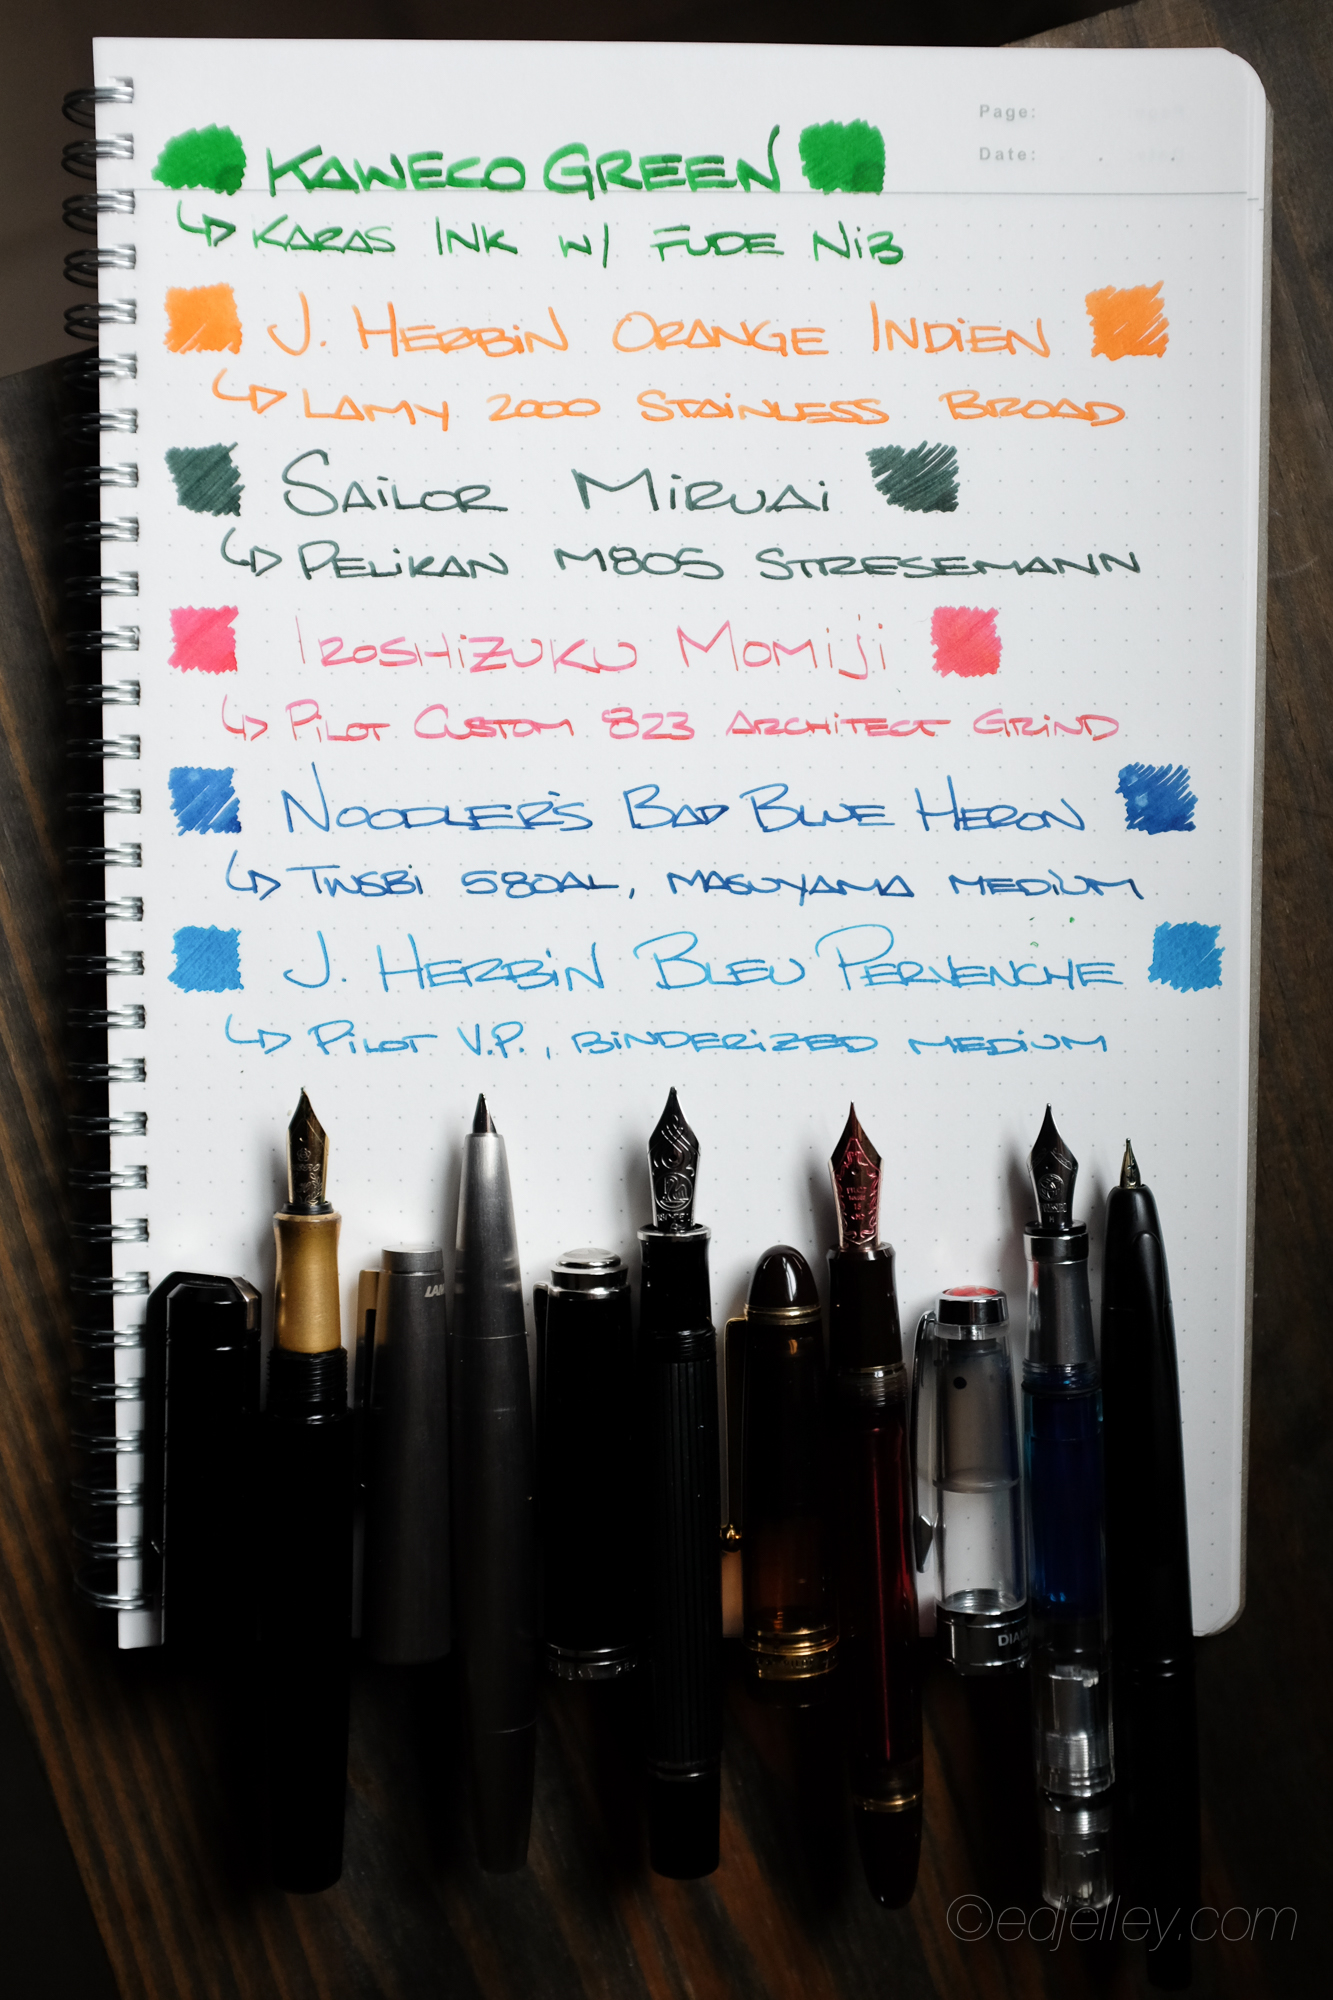 Page:
Date: . .
KAWECO GREEN
↳ KARAS INK W/ FUDE NIB
J. HERBIN ORANGE INDIEN
↳ LAMY 2000 STAINLESS BROAD
SAILOR MIRUAI
↳ PELIKAN M805 STRESEMANN
IROSHIZUKU MOMIJI
↳ PILOT CUSTOM 823 ARCHITECT GRIND
NOODLER'S BAD BLUE HERON
↳ TWSBI 580AL, MASUYAMA MEDIUM
J. HERBIN BLEU PERVENCHE
↳ PILOT V.P., BINDERIZED MEDIUM
LAM
DIAM
©edjelley.com